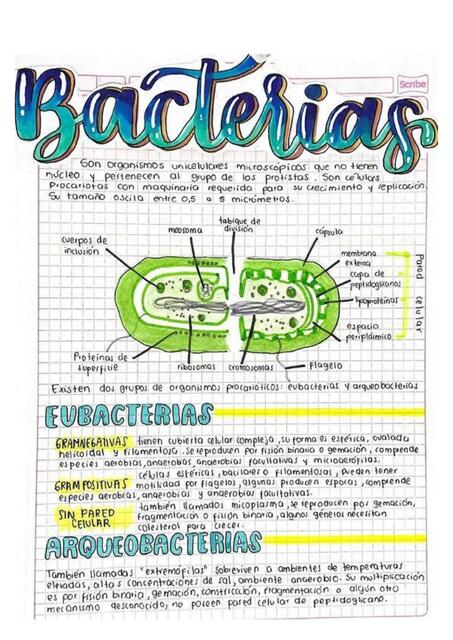 Scribe
Bacterias
Son organismos unicelulares microscópicos que no tienen
núcleo y pertenecen al grupo de los protistas. Son células
Procariotas con maquinaria requerida para su crecimiento y replicación.
Su tamaño oscila entre 0,5 a 5 micrómetros.
tabique de
división
mesosoma
cápsula
cuerpos de
inclusión
membrana
externa
capa de
peptidoglicanos
lipoproteínas
espacio
periplásmico
Pared celular
Proteínas de
superficie
ribosomas
cromosomas
Flagelo
Existen dos grupos de organismos procarióticos: eubacterias y arqueobacterias
EUBACTERIAS
GRAMNEGATIVAS tienen cubierta celular compleja, su forma es esférica, ovalada
helicoidal y filamentosa. Se reproducen por fisión binaria o gemación, comprende
especies aerobias, anaerobias, anaerobias facultativas y microaerófilas.
GRAM POSITIVAS células esféricas, bacilares o filamentosas, pueden tener
motilidad por flagelos, algunas producen esporas, comprende
especies aerobias, anaerobias y anaerobias facultativas.
SIN PARED CELULAR también llamados micoplasma, se reproducen por gemación,
fragmentación o fisión binaria, algunos géneros necesitan
colesterol para crecer.
ARQUEOBACTERIAS
También llamadas "extremófilas" sobreviven a ambientes de temperaturas
elevadas, altas concentraciones de sal, ambiente anaerobio. Su multiplicación
es por fisión binaria, gemación, constricción, fragmentación o algún otro
mecanismo desconocido, no poseen pared celular de peptidoglicano.